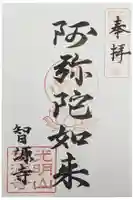 奉拝
阿弥陀如来
智源寺